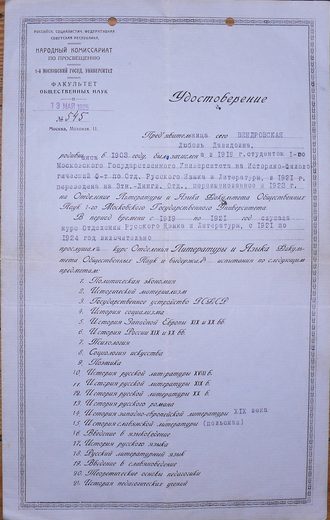 РОССИЙСК. СОЦИАЛИСТИЧ. ФЕДЕРАТИВНАЯ
СОВЕТСКАЯ РЕСПУБЛИКА.
НАРОДНЫЙ КОМИССАРИАТ
ПО ПРОСВЕЩЕНИЮ
1-й МОСКОВСКИЙ ГОСУД. УНИВЕРСИТЕТ
ФАКУЛЬТЕТ
ОБЩЕСТВЕННЫХ НАУК
13 МАЙ 1925
№ 545
Москва, Моховая, 11.
Удостоверение
Пред'явительница сего
Любовь Давидовна,
родилась в 1902 году, была зачислена в 1919 г. студентом 1-го
Московского Государственного Университета на Историко-Филоло-
гический Ф-т по Отд. Русского Языка и Литературы, в 1921 г.
переведена на Этн.-Лингв. Отд. переименованное в 1922 г.
на Отделение Литературы и Языка Факультета Общественных
Наук 1-го Московского Государственного Университета.
В период времени с 1919 по 1921 год слушала
курс Отделения Русского Языка и Литературы, с 1921 по
1924 год включительно
прослушала курс Отделения Литературы и Языка Факуль-
тета Общественных Наук и выдержала испытания по следующим
предметам:
1. Политическая экономия
2. Исторический материализм
3. Государственное устройство РСФСР
4. История социализма
5. История Западной Европы XIX и XX вв.
6. История России XIX и XX вв.
7. Психология
8. Социология искусства
9. Поэтика
10. История русской литературы XVIII в.
11. История русской литературы XIX в.
12. История русской литературы XX в.
13. История русского романа
14. История западно-европейской литературы XIX века
15. История славянской литературы (польской)
16. Введение в языковедение
17. История русского языка
18. Русский литературный язык
19. Введение в славяноведение
20. Теоретические основы педагогики
21. История педагогических учений